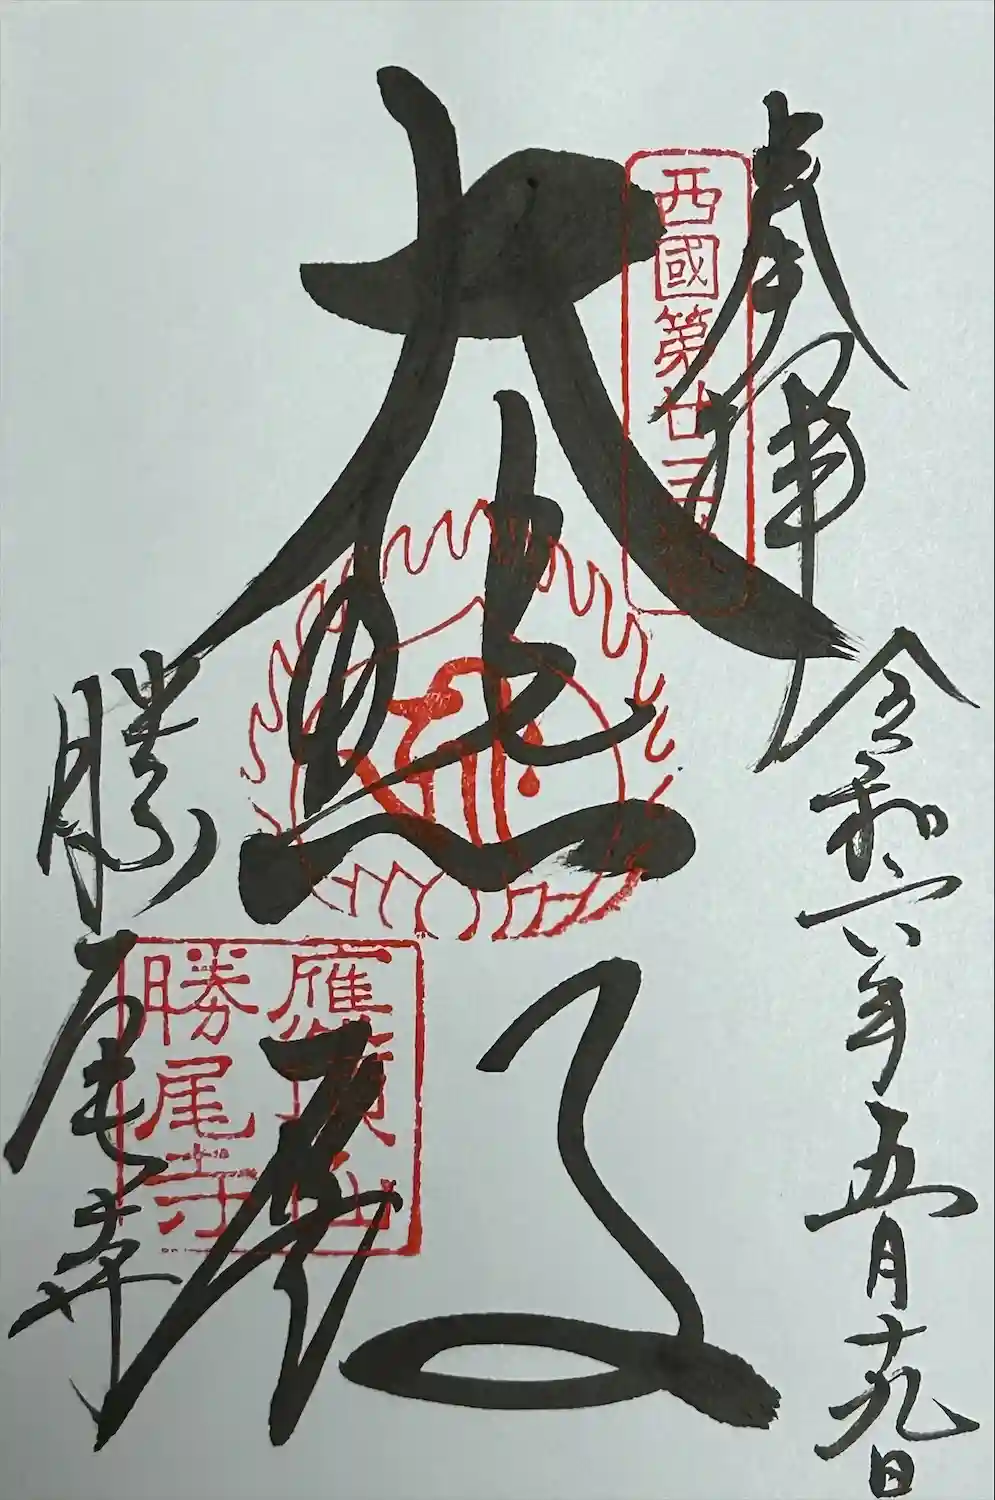 奉拝
令和六年五月十九日
西國第廿三番
大悲殿
應頂山
勝尾寺
勝尾寺